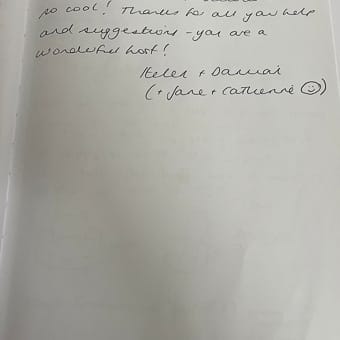 so cool! Thanks for all your help
and suggestions - you are a
wonderful host!
Helen +
(+ Jane + Catherine ☺)